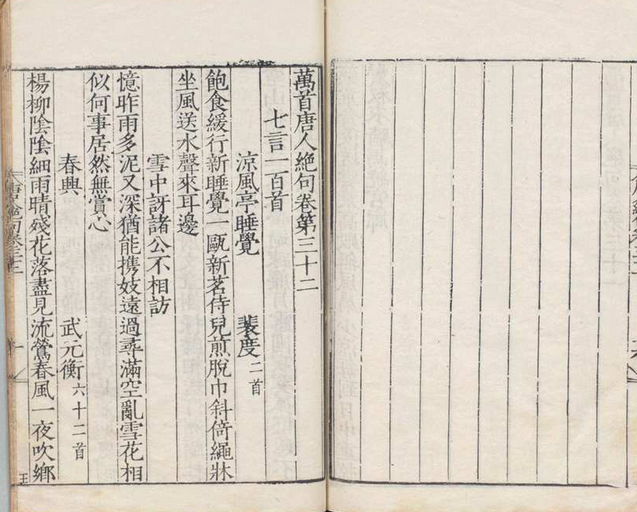 萬首唐人絶句卷第三十二
七言一百首
涼風亭睡覺 裴度二首
飽食緩行新睡覺一甌新茗侍兒煎脫巾斜倚繩牀
坐風送水聲來耳邊
雪中訝諸公不相訪
憶昨雨多泥又深猶能携妓遠過尋滿空亂雪花相
似何事居然無賞心
春興 武元衡六十二首
楊柳陰陰細雨晴殘花落盡見流鶯春風一夜吹鄉